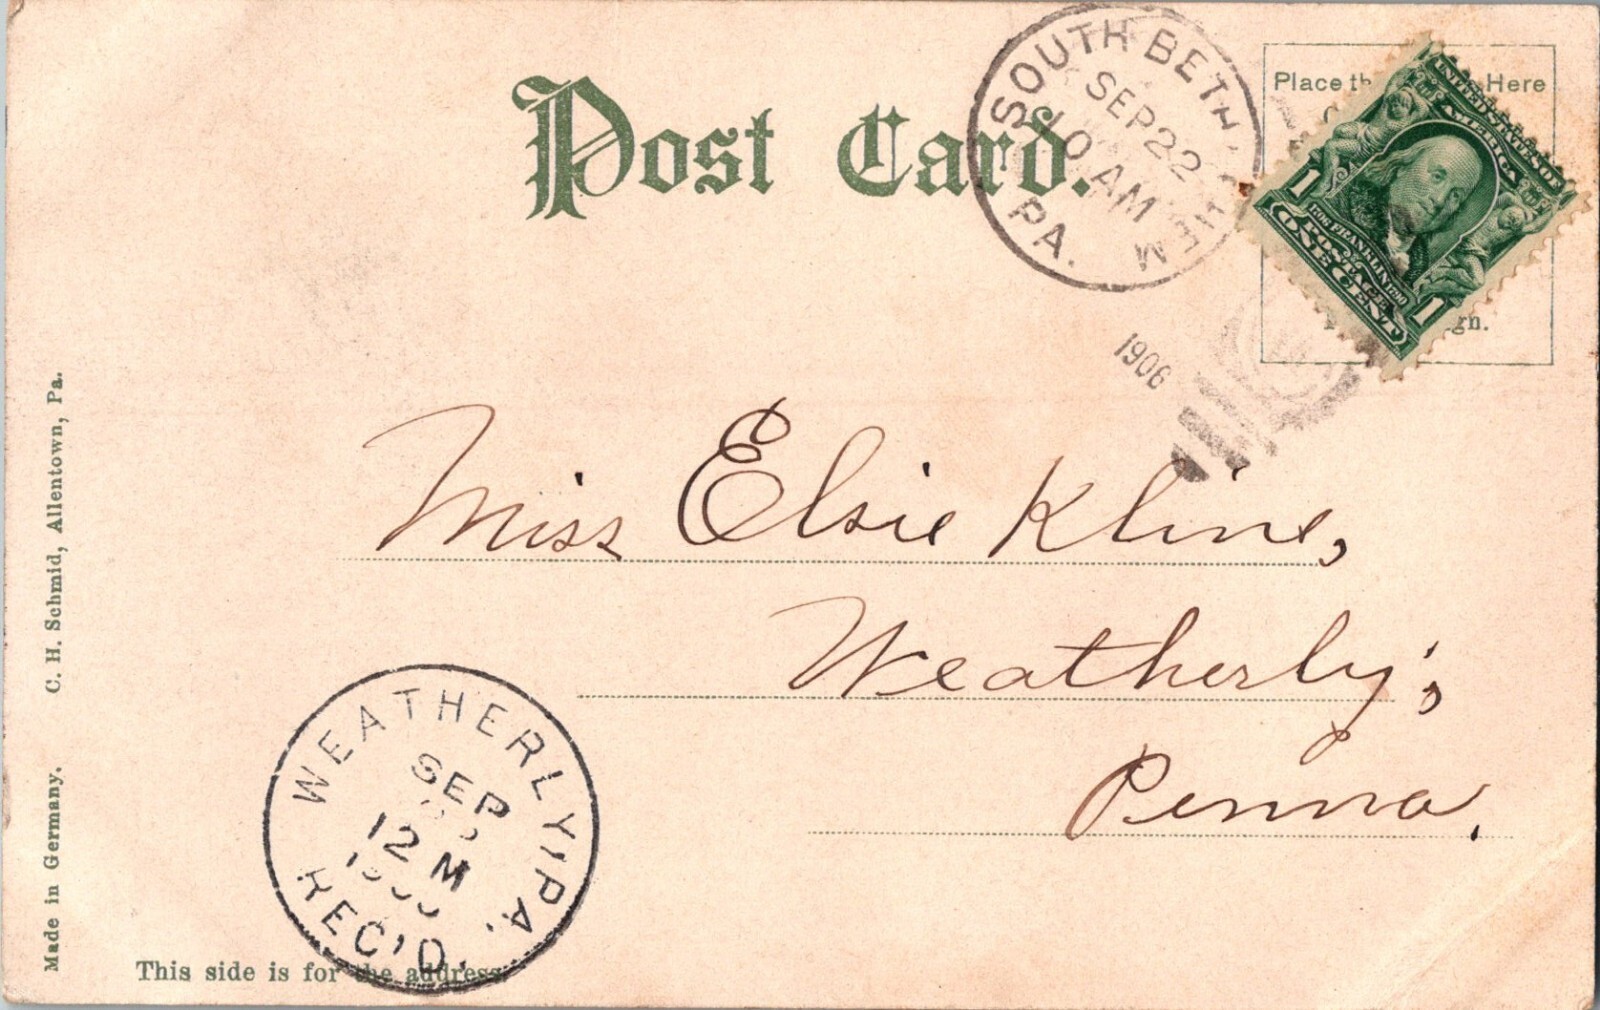 Post Card.
SOUTH BETHLEHEM
PA.
SEP 22
10 AM
1906
Place Here
UNITED STATES OF
AMERICA
1706 FRANKLIN 1790
POSTAGE
1 ONE CENT 1
Miss Elsie Kline,
Weatherly,
Penna.
WEATHERLY, PA.
SEP
12 M
REC'D.
This side is for the address.
Made in Germany. C. H. Schmid, Allentown, Pa.